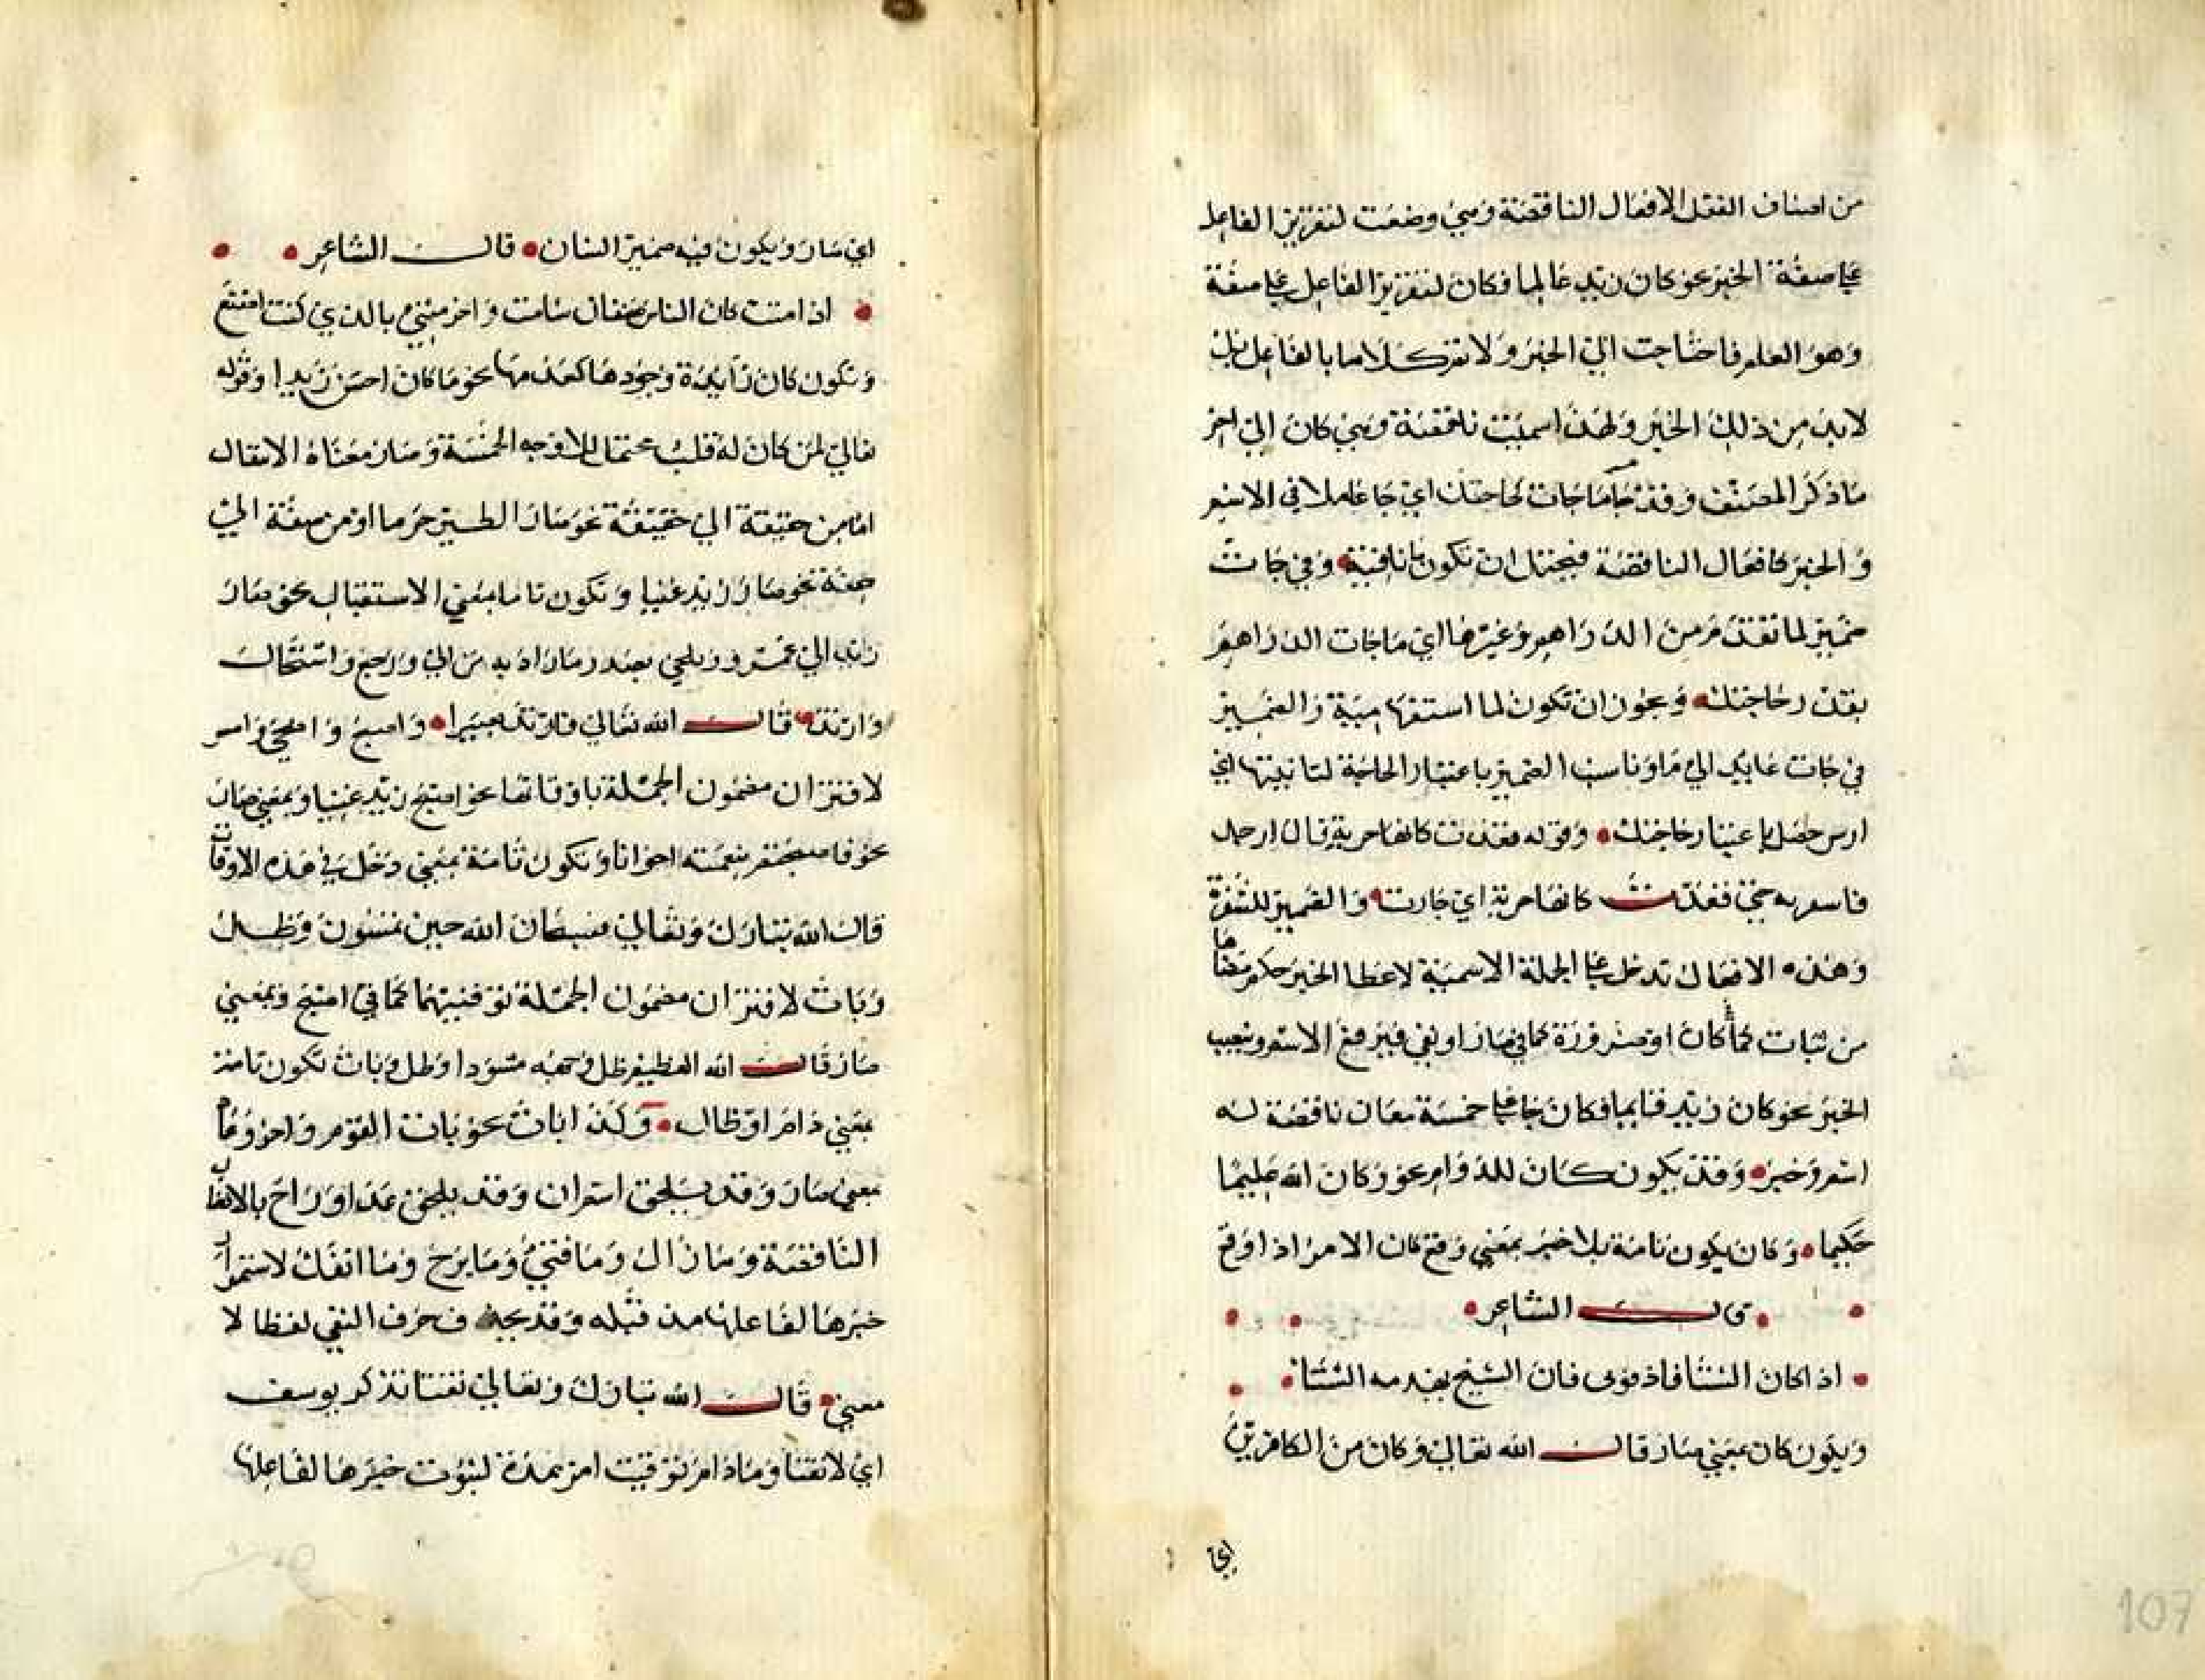 من اصناف الفعل الافعال الناقصة وهي وضعت لتقرير الفاعل
علي صفة الخبر نحو كان زيد عالما فكان لتقرير الفاعل علي صفة
وهو العلم فاحتاجت الي الخبر ولا تتم كلاما بالفاعل بل
لابد من ذلك الخبر ولهذا سميت ناقصة وهي كان الي اخر
ما ذكر المصنف وقد جا ما جات لحاجتك اي جا عاملا في الاسم
والخبر كافعال الناقصة فيحتمل ان تكون ما نافية وفي جات
ضمير لما تقدم من الدراهم وغيرها اي ما جات الدراهم
بقدر حاجتك ويجوز ان تكون لما استفهامية والضمير
في جات عايد الي ما وناسب الضمير باعتبار الحاجة لتانيثها اي
حصل حاجتك وقوله فقعدت كانها حربة قال ارجل
حتي فقعدت كانها حربة اي جارت والضمير للشفرة
وهذه الافعال تدخل علي الجملة الاسمية لاعطا الخبر حكم معناها
من ثبات كما كان او صيرورة كما في صار او نفي فيرفع الاسم وينصب
الخبر نحو كان زيد قايما فكان جا علي خمسة معان ناقصة له
اسم وخبر وقد يكون كان للدوام نحو وكان الله عليما
حكيما وكان يكون تامة بلا خبر بمعني وقع كان الامر اذا وقع
قال الشاعر
اذا كان الشتا فادفوني فان الشيخ يهدمه الشتا
ويكون كان بمعني صار قال الله تعالي وكان من الكافرين
اي
اي صار ويكون فيه ضمير الشان قال الشاعر
اذا مت كان الناس صنفان شامت واخر مثني بالذي كنت اصنع
وتكون كان زايدة وجودها كعدمها نحو ما كان احسن زيدا وقوله
تعالي لمن كان له قلب محتمل للاوجه الخمسة وصار معناه الانتقال
اما من حقيقة الي حقيقة نحو صار الطين خزفا او من صفة الي
صفة نحو صار زيد غنيا وتكون تاما بمعني الاستقبال نحو صار
زيد الي عمرو ويلحق بصار ما رادفه من الي ورجع واستحال
وارتد قال الله تعالي فارتد بصيرا واصبح واضحي وامسي
لاقتران مضمون الجملة باوقاتها نحو اصبح زيد غنيا وبمعني صار
نحو فاصبحتم بنعمته اخوانا وتكون تامة بمعني دخل في هذه الاوقات
قال الله تبارك وتعالي فسبحان الله حين تمسون وظل
وبات لاقتران مضمون الجملة بوقتيهما كما في اصبح وبمعني
صار قال الله العظيم ظل وجهه مسودا وظل وبات تكون تامة
بمعني دام او طال وكذا بات نحو بات القوم
بمعني صار وقد يلحق غدا وراح بالافعال
الناقصة وما زال وما فتي وما برح وما انفك لاستمرار
خبرها لفاعلها مذ قبله وقد يحذف حرف النفي لفظا لا
معني قال الله تبارك وتعالي تفتا تذكر يوسف
اي لا تفتا وما دام توقيت امر بمدة لثبوت خبرها لفاعلها
107